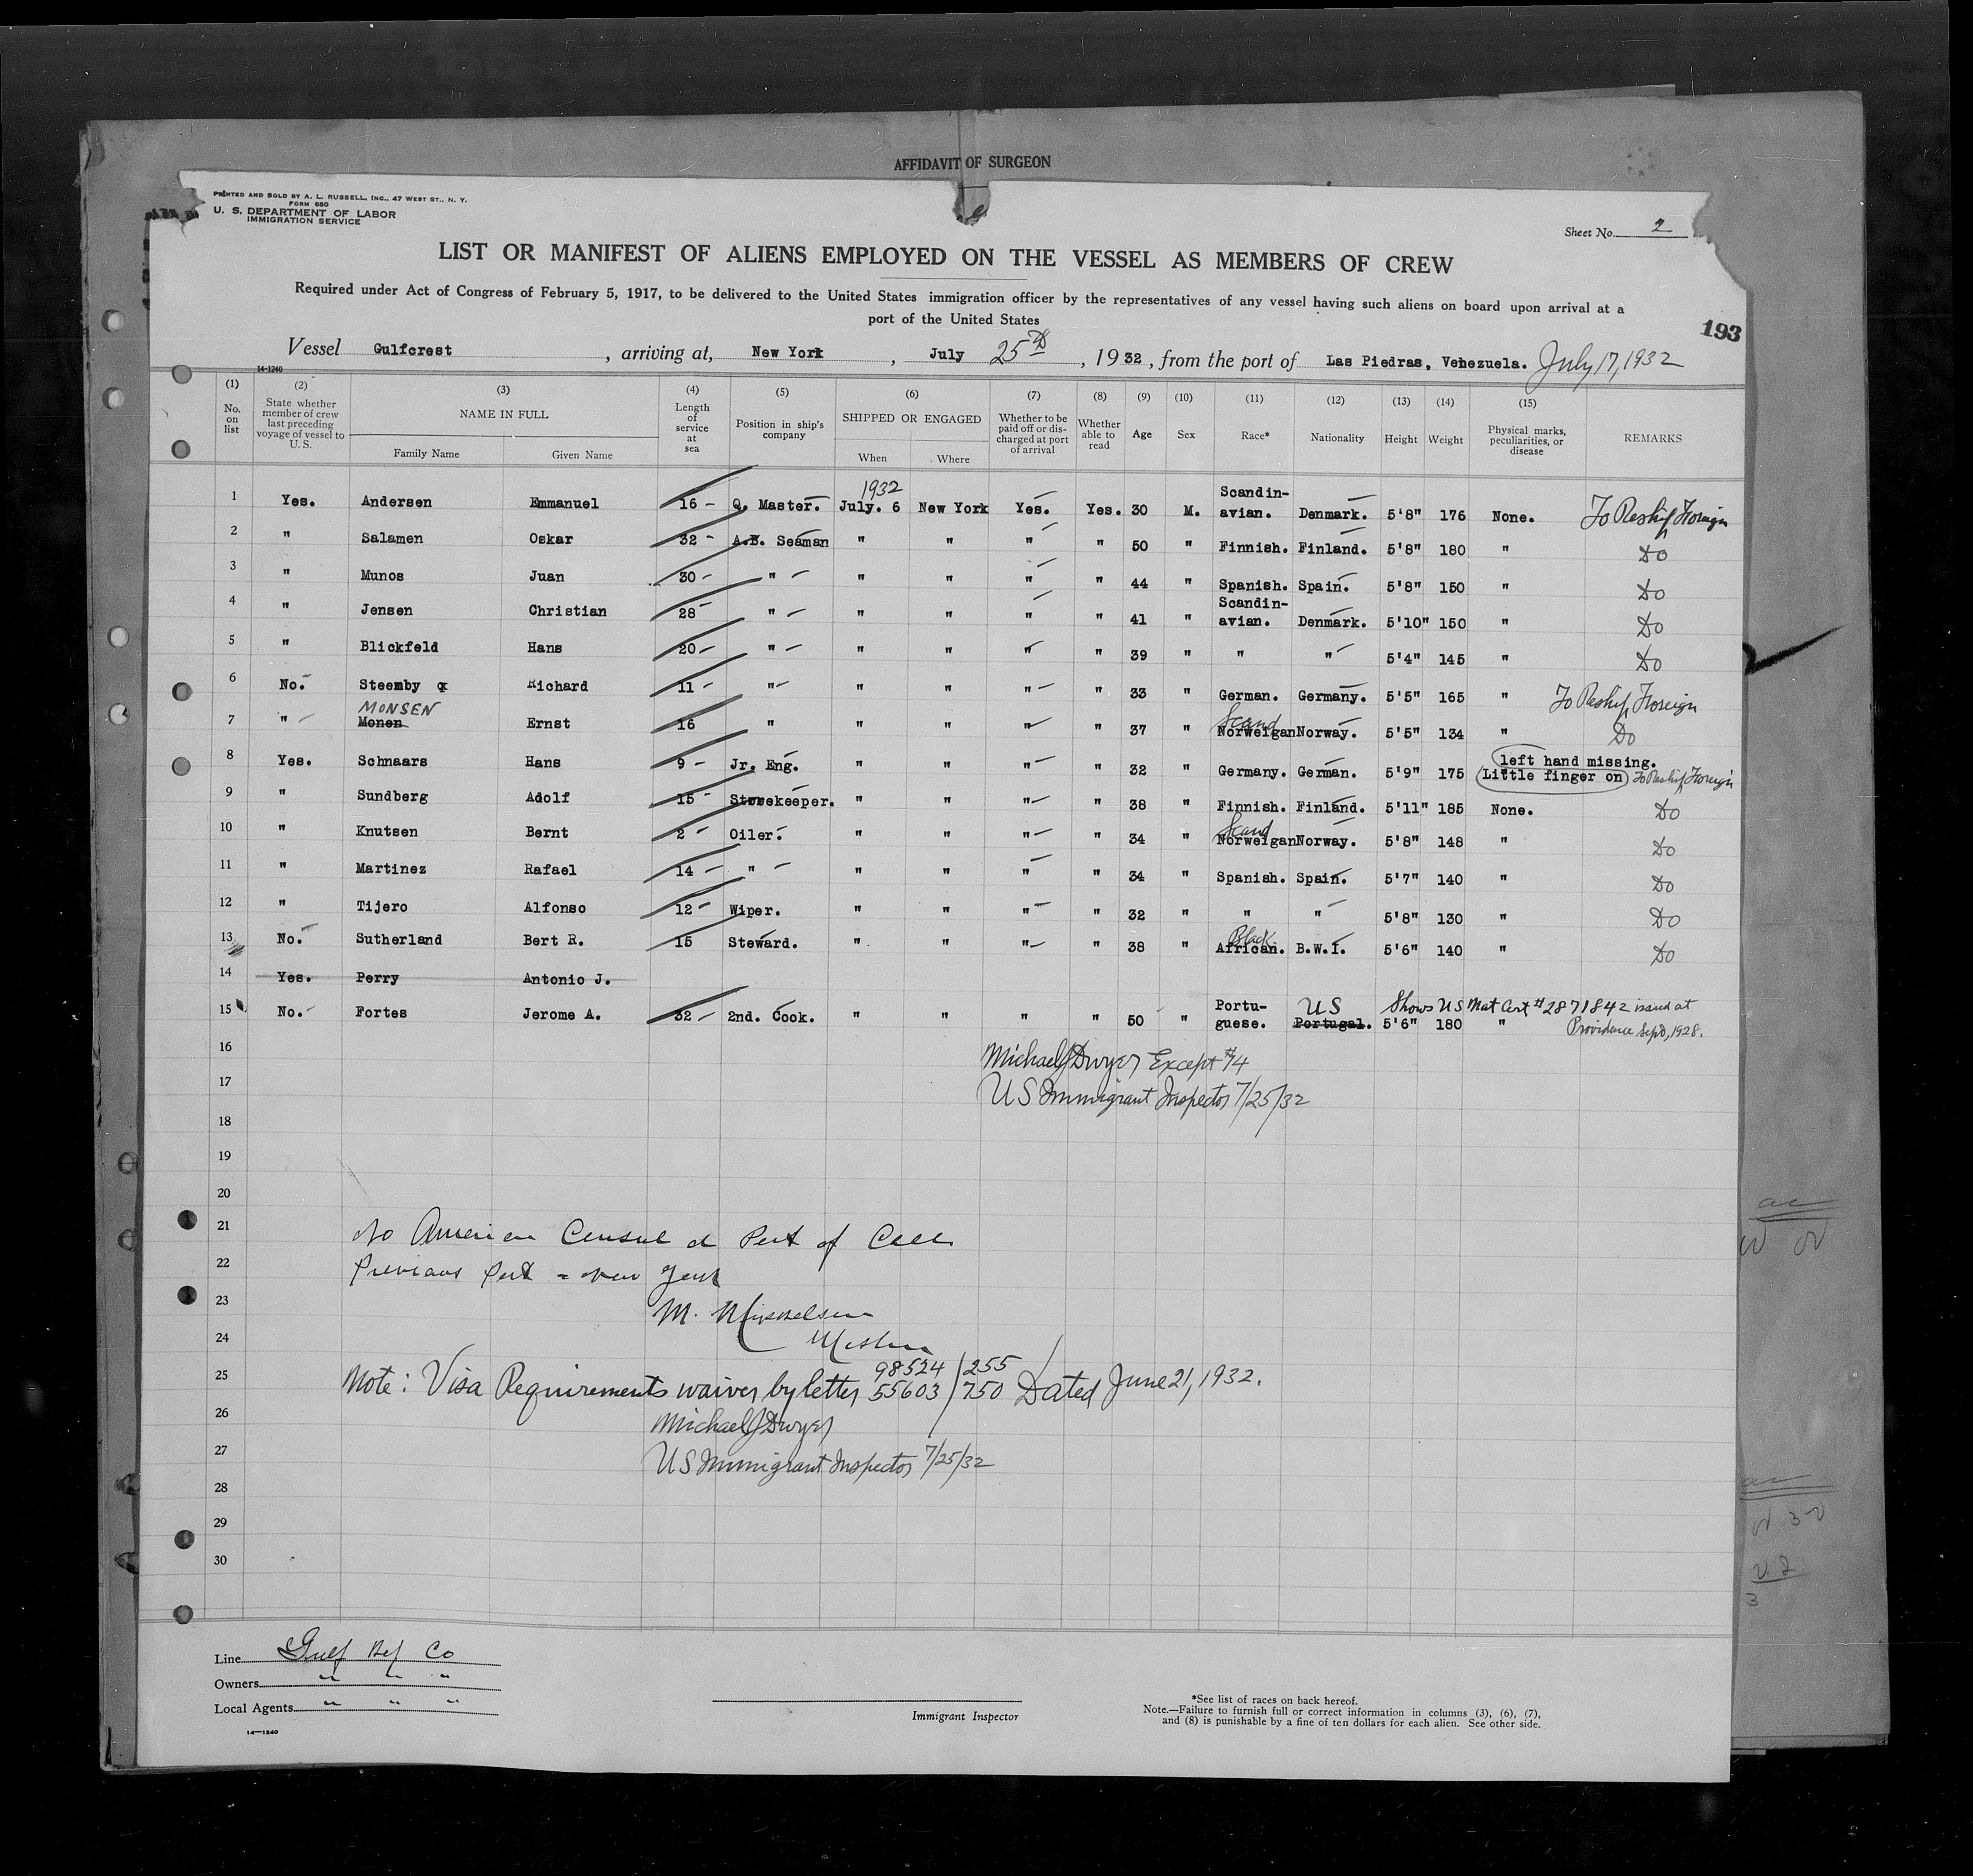 AFFIDAVIT OF SURGEON
PRINTED AND SOLD BY A. L. RUSSELL, INC., 47 WEST ST., N. Y.
FORM 680
U. S. DEPARTMENT OF LABOR
IMMIGRATION SERVICE
Sheet No. 2
LIST OR MANIFEST OF ALIENS EMPLOYED ON THE VESSEL AS MEMBERS OF CREW
Required under Act of Congress of February 5, 1917, to be delivered to the United States immigration officer by the representatives of any vessel having such aliens on board upon arrival at a
port of the United States
193
Vessel Gulfcrest, arriving at, New York, July 25th, 1932, from the port of Las Piedras, Venezuela. July 17, 1932
14-1240
(1) (2) (3) (4) (5) (6) (7) (8) (9) (10) (11) (12) (13) (14) (15)
No. on list State whether member of crew last preceding voyage of vessel to U. S. NAME IN FULL Length of service at sea Position in ship's company SHIPPED OR ENGAGED Whether to be paid off or discharged at port of arrival Whether able to read Age Sex Race* Nationality Height Weight Physical marks, peculiarities, or disease REMARKS
Family Name Given Name When Where
1932
1 Yes. Andersen Emmanuel 16 - Q. Master. July. 6 New York Yes. Yes. 30 M. Scandin-avian. Denmark. 5'8" 176 None. To Reship Foreign
2 " Salamen Oskar 32 - A.B. Seaman " " " " 50 " Finnish. Finland. 5'8" 180 " Do
3 " Munos Juan 30 - " " " " " 44 " Spanish. Spain. 5'8" 150 " Do
4 " Jensen Christian 28 - " " " " " 41 " Scandin-avian. Denmark. 5'10" 150 " Do
5 " Blickfeld Hans 20 - " " " " " 39 " " " 5'4" 145 " Do
6 No. Steemby x Richard 11 - " " " " " 33 " German. Germany. 5'5" 165 " To Reship Foreign
MONSEN
7 " Monen Ernst 16 " " " " " 37 " Scand Norweigan Norway. 5'5" 134 " Do
8 Yes. Schnaars Hans 9 - Jr. Eng. " " " " 32 " Germany. German. 5'9" 175 left hand missing. Little finger on To Reship Foreign
9 " Sundberg Adolf 15 - Storekeeper. " " " " 38 " Finnish. Finland. 5'11" 185 None. Do
10 " Knutsen Bernt 2 - Oiler. " " " " 34 " Scand Norweigan Norway. 5'8" 148 " Do
11 " Martinez Rafael 14 - " " " " " 34 " Spanish. Spain. 5'7" 140 " Do
12 " Tijero Alfonso 12 - Wiper. " " " " 32 " " " 5'8" 130 " Do
13 No. Sutherland Bert R. 15 Steward. " " " " 38 " Black African. B.W.I. 5'6" 140 " Do
14 Yes. Perry Antonio J.
15 No. Fortes Jerome A. 32 - 2nd. Cook. " " " " 50 " Portu-guese. US Portugal. 5'6" 180 " Shows US Nat Cert #2871842 issued at Providence Sept, 1928.
16 Michael J Dwyer Except #14
17 US Immigrant Inspector 7/25/32
18
19
20
21 No American Consul at Port of Call
22 Previous Port = New York
23 M. Mikkelsen
24 Master
98524/255
25 Note: Visa Requirements waiver by letter 55603/750 Dated June 21, 1932.
26 Michael J Dwyer
27 US Immigrant Inspector 7/25/32
28
29
30
Line Gulf Ref Co
Owners " " "
Local Agents " " "
14-1240
Immigrant Inspector
*See list of races on back hereof.
Note.—Failure to furnish full or correct information in columns (3), (6), (7),
and (8) is punishable by a fine of ten dollars for each alien. See other side.